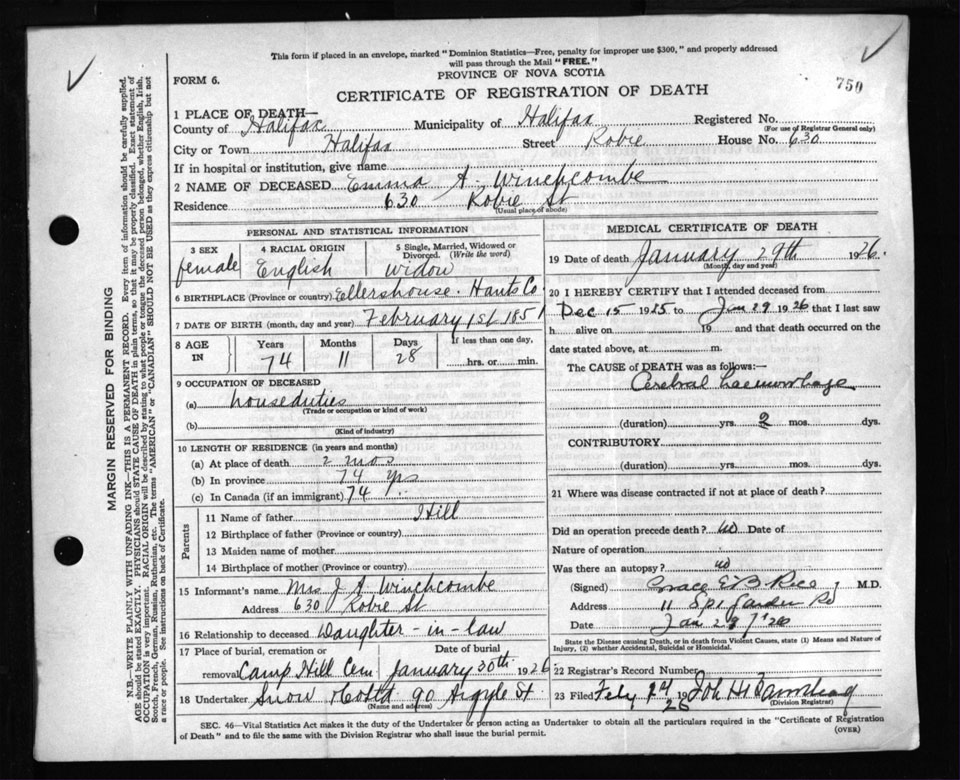 This form if placed in an envelope, marked "Dominion Statistics—Free, penalty for improper use $300," and properly addressed
will pass through the Mail "FREE."
FORM 6.
PROVINCE OF NOVA SCOTIA
750
CERTIFICATE OF REGISTRATION OF DEATH
1 PLACE OF DEATH—
County of Halifax Municipality of Halifax Registered No.
(For use of Registrar General only)
City or Town Halifax Street Robie House No. 630
If in hospital or institution, give name
2 NAME OF DECEASED Emma A. Winchcombe
Residence 630 Robie St
(Usual place of abode)
PERSONAL AND STATISTICAL INFORMATION
3 SEX 4 RACIAL ORIGIN 5 Single, Married, Widowed or Divorced. (Write the word)
female English widow
6 BIRTHPLACE (Province or country) Ellershouse. Hants Co
7 DATE OF BIRTH (month, day and year) February 1st 1851
8 AGE IN Years Months Days If less than one day,
74 11 28 hrs. or min.
9 OCCUPATION OF DECEASED
(a) houseduties
(Trade or occupation or kind of work)
(b)
(Kind of industry)
10 LENGTH OF RESIDENCE (in years and months)
(a) At place of death 2 mos
(b) In province 74 yrs
(c) In Canada (if an immigrant) 74
Parents
11 Name of father Hill
12 Birthplace of father (Province or country)
13 Maiden name of mother
14 Birthplace of mother (Province or country)
15 Informant's name Mrs J. A. Winchcombe
Address 630 Robie St
16 Relationship to deceased Daughter-in-law
17 Place of burial, cremation or removal Date of burial
Camp Hill Cem January 30th 1926
18 Undertaker Snow 90 Argyle St.
(Name and address)
MEDICAL CERTIFICATE OF DEATH
19 Date of death January 29th 1926.
(Month, day and year)
20 I HEREBY CERTIFY that I attended deceased from
Dec 15 1925 to Jan 29 1926 that I last saw
h alive on 19 and that death occurred on the
date stated above, at m.
The CAUSE of DEATH was as follows:—
Cerebral haemorrhage
(duration) yrs. 2 mos. dys.
CONTRIBUTORY
(duration) yrs. mos. dys.
21 Where was disease contracted if not at place of death?
Did an operation precede death? no Date of
Nature of operation
Was there an autopsy? no
(Signed) Grace E B Rice M.D.
Address 11 Spr Garden Rd
Date Jan 29
State the Disease causing Death, or in death from Violent Causes, state (1) Means and Nature of
Injury, (2) whether Accidental, Suicidal or Homicidal.
22 Registrar's Record Number
23 Filed Feby 24 1926
(Division Registrar)
SEC. 46—Vital Statistics Act makes it the duty of the Undertaker or person acting as Undertaker to obtain all the particulars required in the "Certificate of Registration
of Death" and to file the same with the Division Registrar who shall issue the burial permit.
(OVER)
MARGIN RESERVED FOR BINDING
N.B.—WRITE PLAINLY WITH UNFADING INK—THIS IS A PERMANENT RECORD. Every item of information should be carefully supplied.
AGE should be stated EXACTLY. PHYSICIANS should STATE CAUSE OF DEATH in plain terms, so that it may be properly classified. Exact statement of
OCCUPATION is very important. RACIAL ORIGIN will be described by stating to what people or tongue the deceased person belonged, whether English, Irish,
Scotch, French, German, Russian, Ruthenian, etc. The terms "AMERICAN" or "CANADIAN" SHOULD NOT BE USED as they express citizenship but not
a race or people. See instructions on back of Certificate.